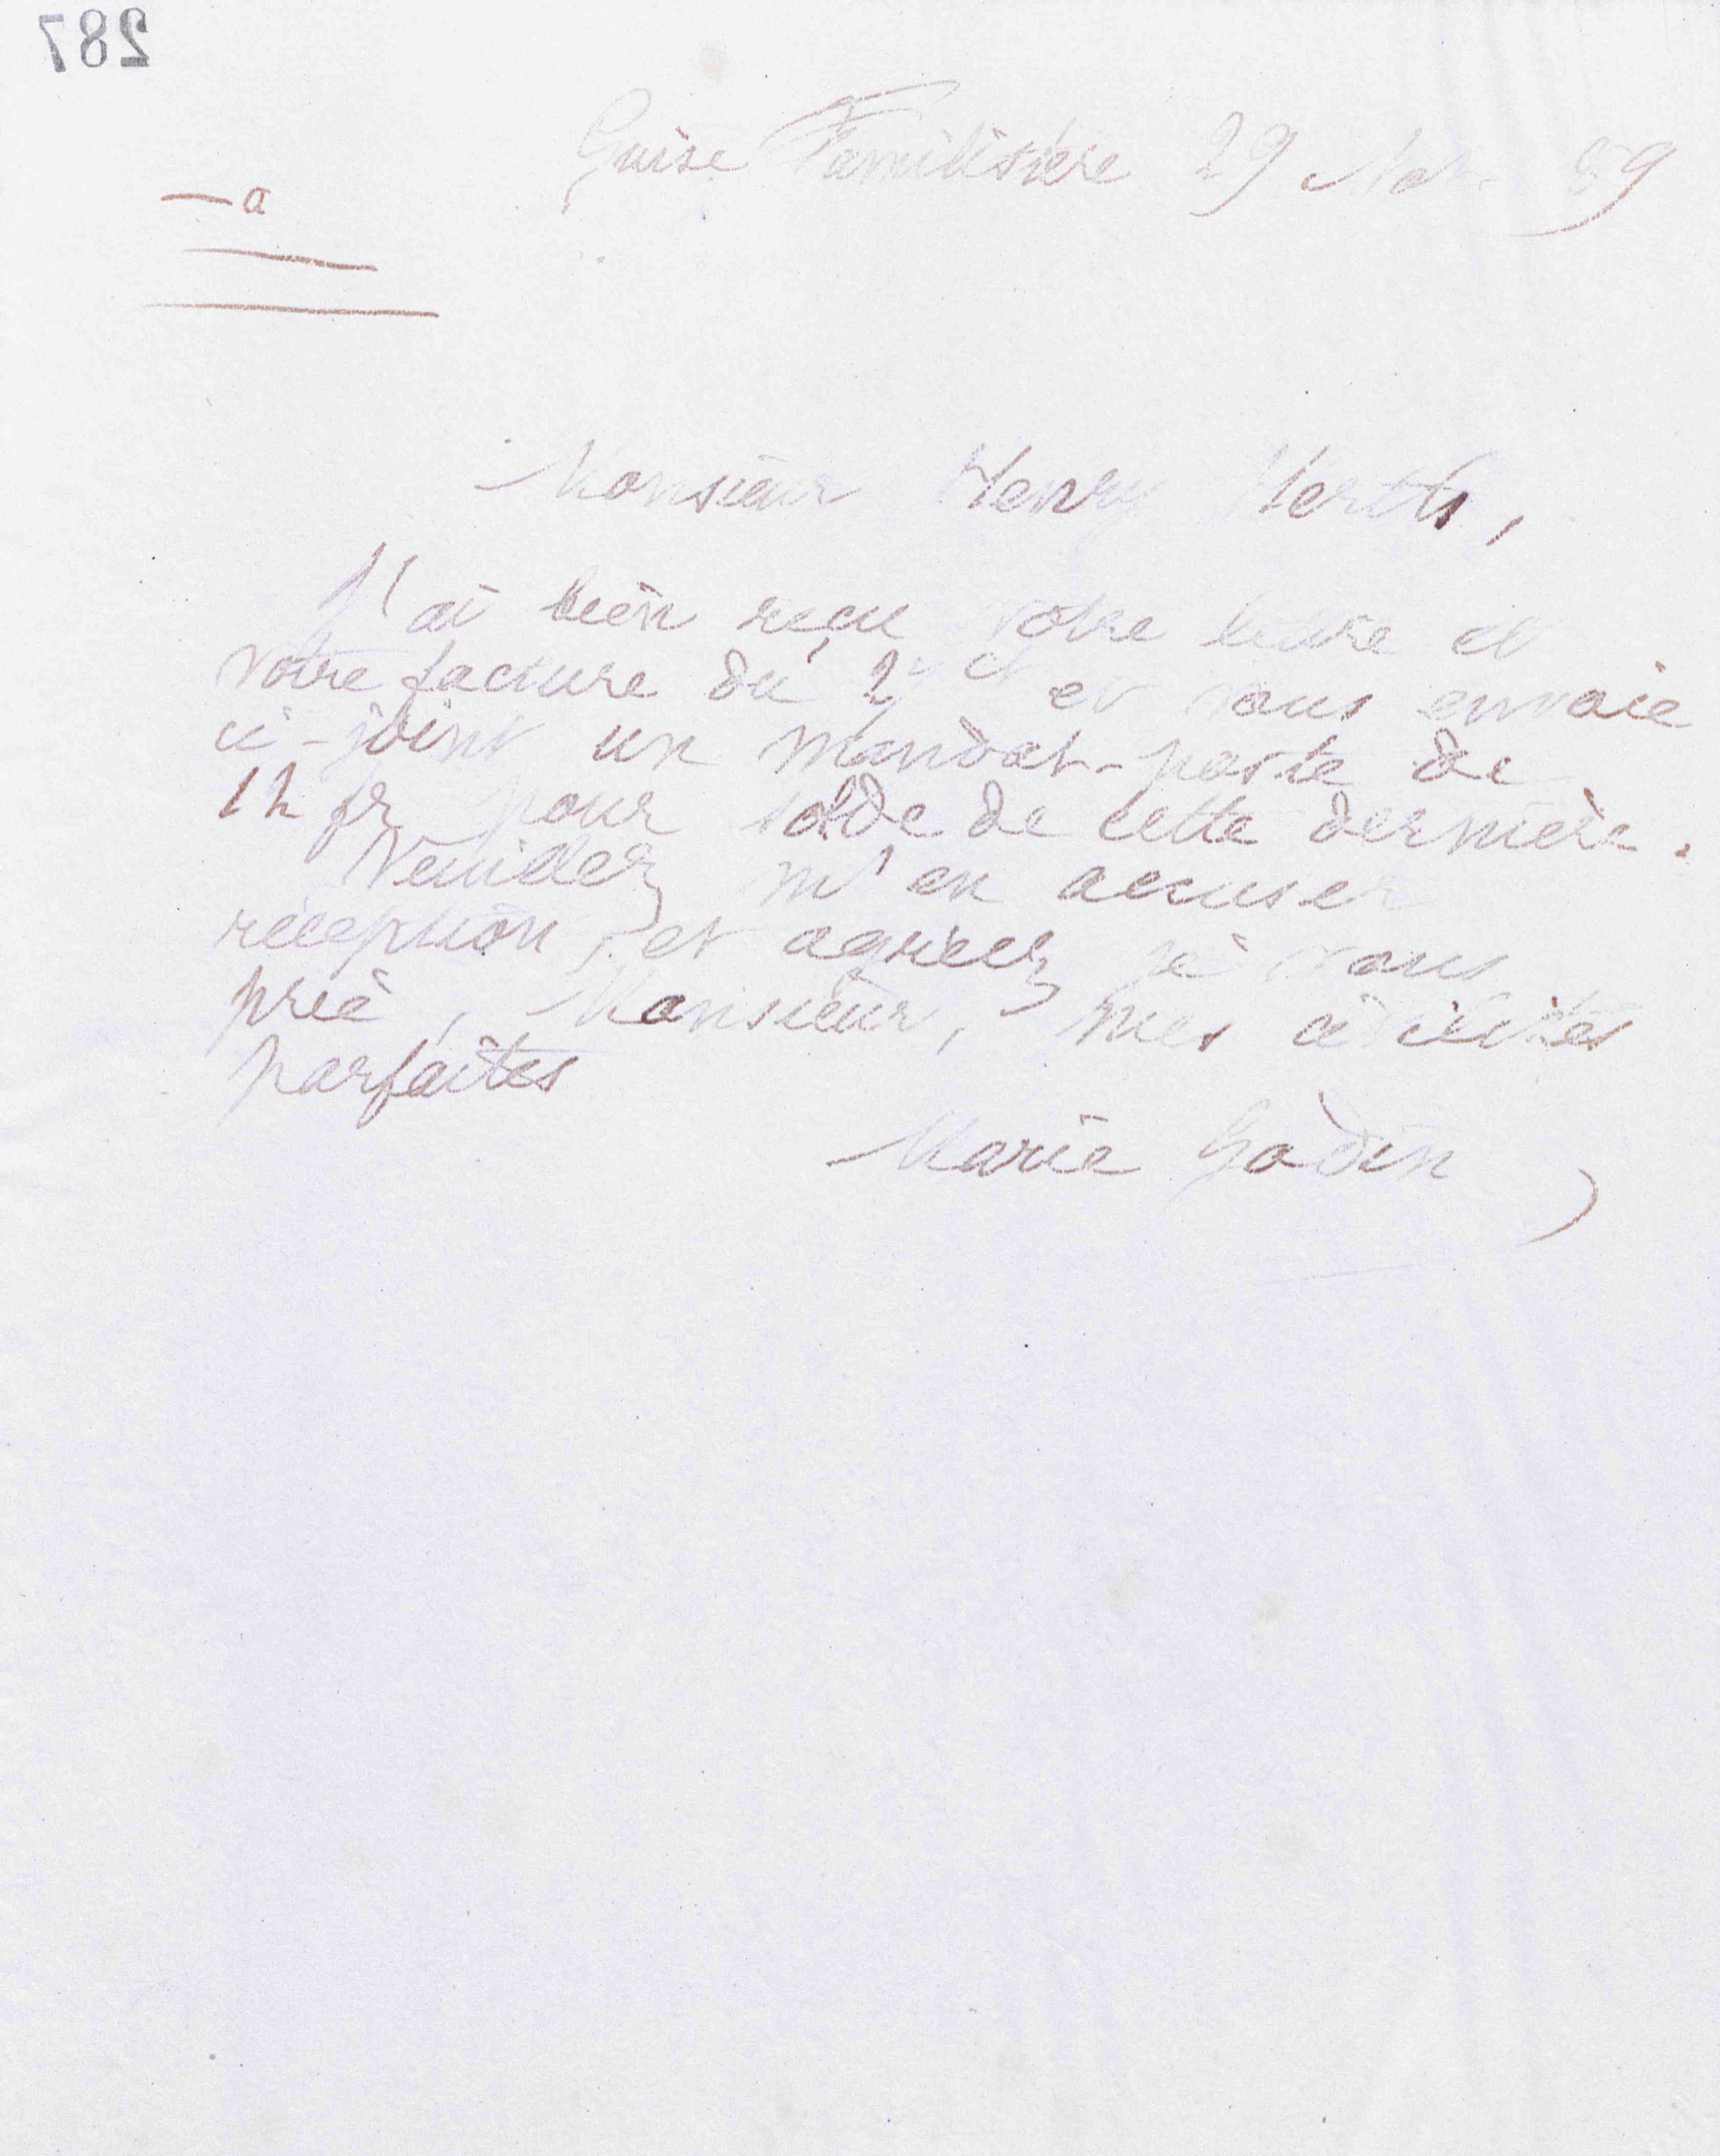 287
Guise Familistère 29 Nov. 89
a
Monsieur Henry Herth,
J'ai bien reçu votre lettre et
votre facture du et vous envoie
ci-joint un mandat-poste de
12 fr pour solde de cette dernière.
Veuillez m'en accuser
réception, et agréez, je vous
prie, Monsieur, mes civilités
parfaites
Marie Godin